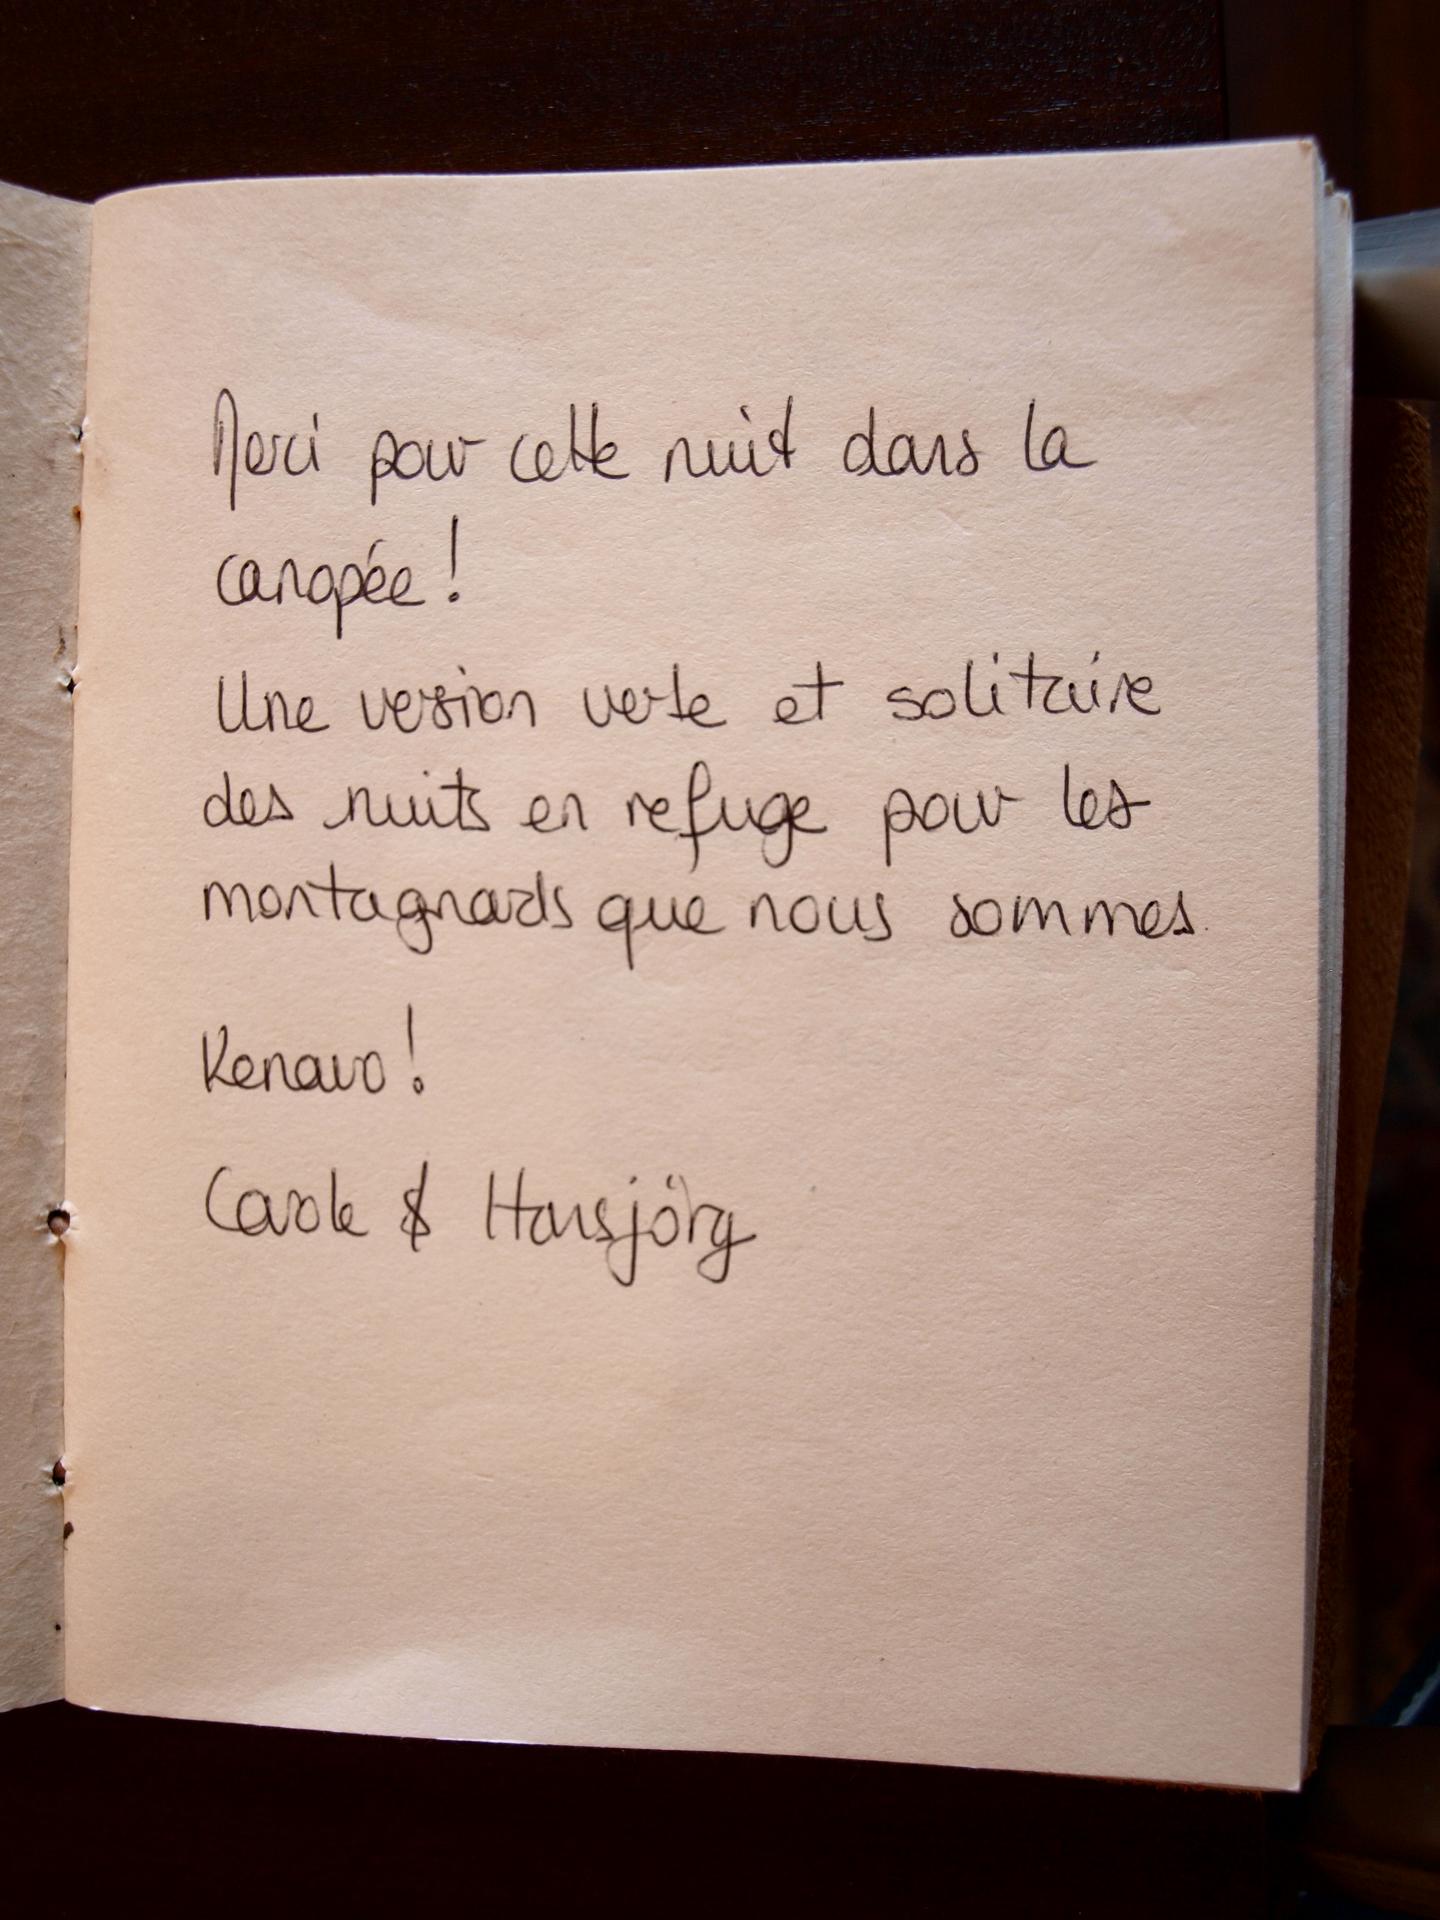 Merci pour cette nuit dans la
canopée !
Une version verte et solitaire
des nuits en refuge pour les
montagnards que nous sommes.
Kenavo !
Carole & Hansjörg